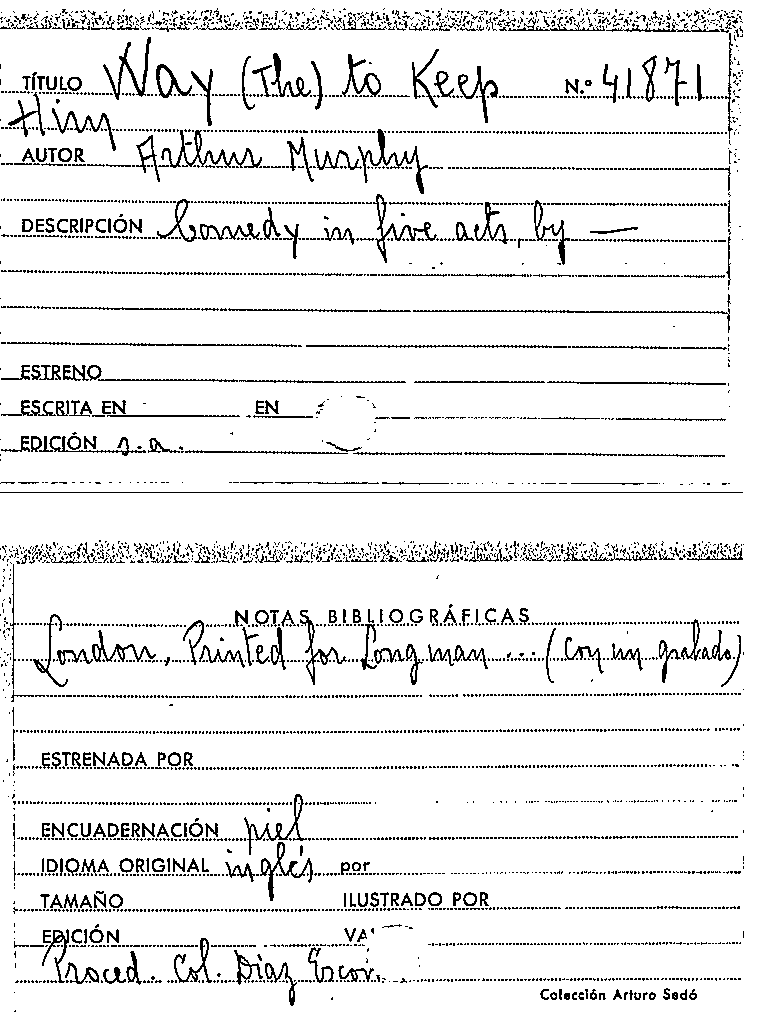 TÍTULO Way (The) to Keep N.º 41871
Him
AUTOR Arthur Murphy
DESCRIPCIÓN Comedy in five acts, by —
ESTRENO
ESCRITA EN EN
EDICIÓN s.a.
NOTAS BIBLIOGRÁFICAS
London, Printed for Longman ... (con un grabado)
ESTRENADA POR
ENCUADERNACIÓN piel
IDIOMA ORIGINAL inglés por
TAMAÑO ILUSTRADO POR
EDICIÓN VA
Proced. Col. Díaz Escov.
Colección Arturo Sedó